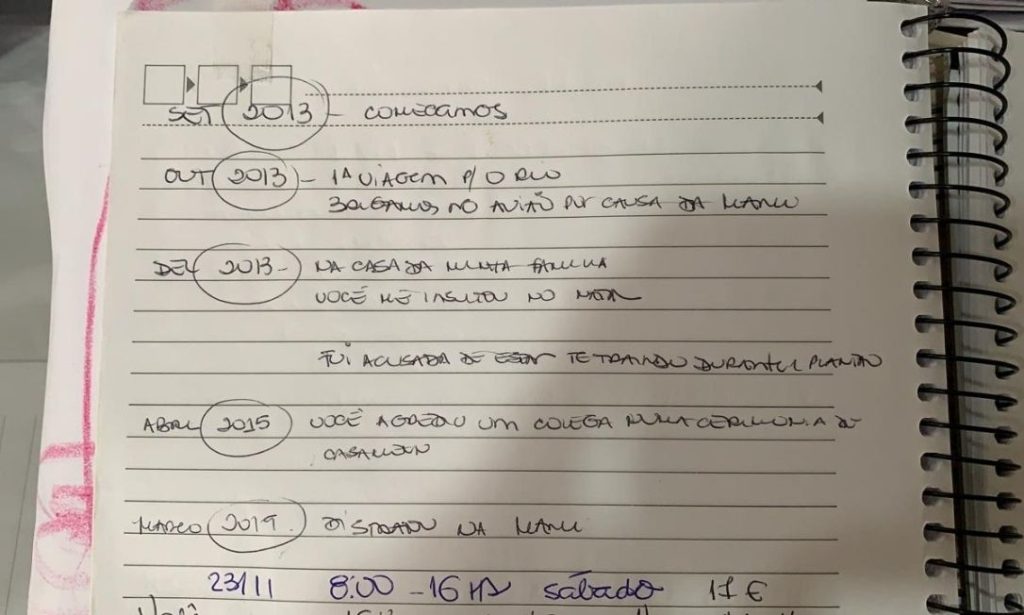 SET 2013 - COMEÇAMOS
OUT 2013 - 1ª VIAGEM P/ O RIO
BRIGAMOS NO AVIÃO POR CAUSA DA MANU
DEZ 2013 - NA CASA DA MINHA FAMILIA
VOCÊ ME INSULTOU NO NATAL
FUI ACUSADA DE ESTAR TE TRAINDO DURANTE PLANTÃO
ABRIL 2015 VOCÊ AGREDIU UM COLEGA NUMA CERIMONIA DE
CASAMENTO
MARÇO 2019. NA MANU
23/11 8:00 - 16 HS sábado 17 €